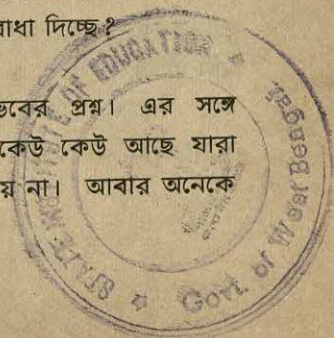 বাধা দিচ্ছে?
ভবের প্রশ্ন। এর সঙ্গে
কেউ কেউ আছে যারা
য় না। আবার অনেকে
STATE INSTITUTE OF EDUCATION
Govt. of West Bengal